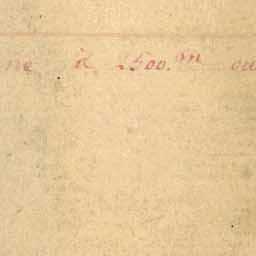 ne à 2500.m ou